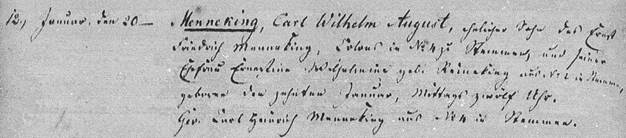 12., Januar. den 20— Menneking, Carl Wilhelm August, ehelicher Sohn des Ernst
Friedrich Menneking, Colons in No 4 zu Stemmen, und seiner
Ehefrau Ernestine Wilhelmine geb. Reineking aus No 2 in Stemmen,
geboren den zehnten Januar, Mittags zwölf Uhr.
Gev. Carl Heinrich Menneking aus No 4 in Stemmen.